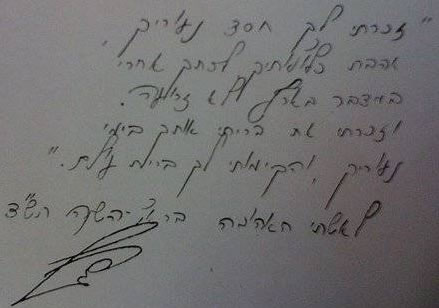 "זכרתי לך חסד נעוריך,
אהבת כלולותיך לכתך אחרי
במידבר בארץ לא זרועה.
וזכרתי את בריתי אותך בימי
נעוריך, והקימותי לך ברית עולם."
לאשתי האהובה בראש-השנה תש"ד